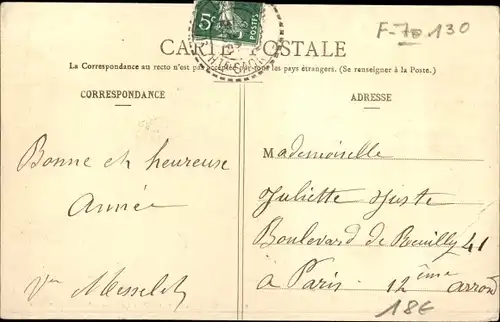 5c POSTES
F-70 130
CARTE POSTALE
La Correspondance au recto n'est pas acceptée par tous les pays étrangers. (Se renseigner à la Poste.)
CORRESPONDANCE
ADRESSE
Bonne et heureuse
année
Vve Messelet
Mademoiselle
Juliette Juste
Boulevard de Reuilly 41
à Paris. 12ème arrond
18€